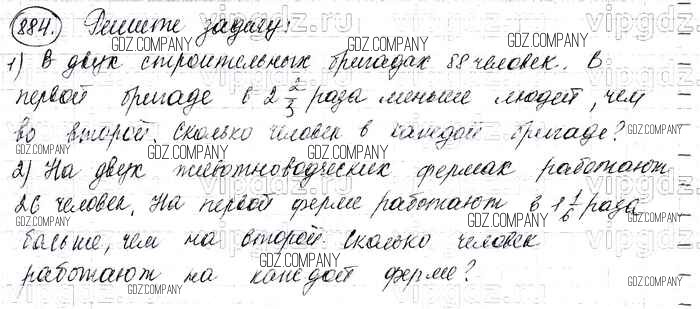 884. Решите задачу:
1) В двух строительных бригадах 88 человек. В
первой бригаде в 2 2/3 раза меньше людей, чем
во второй. Сколько человек в каждой бригаде?
2) На двух животноводческих фермах работают
26 человек. На первой ферме работают в 1 1/6 раза
больше, чем на второй. Сколько человек
работают на каждой ферме?
GDZ.COMPANY
vipgdz